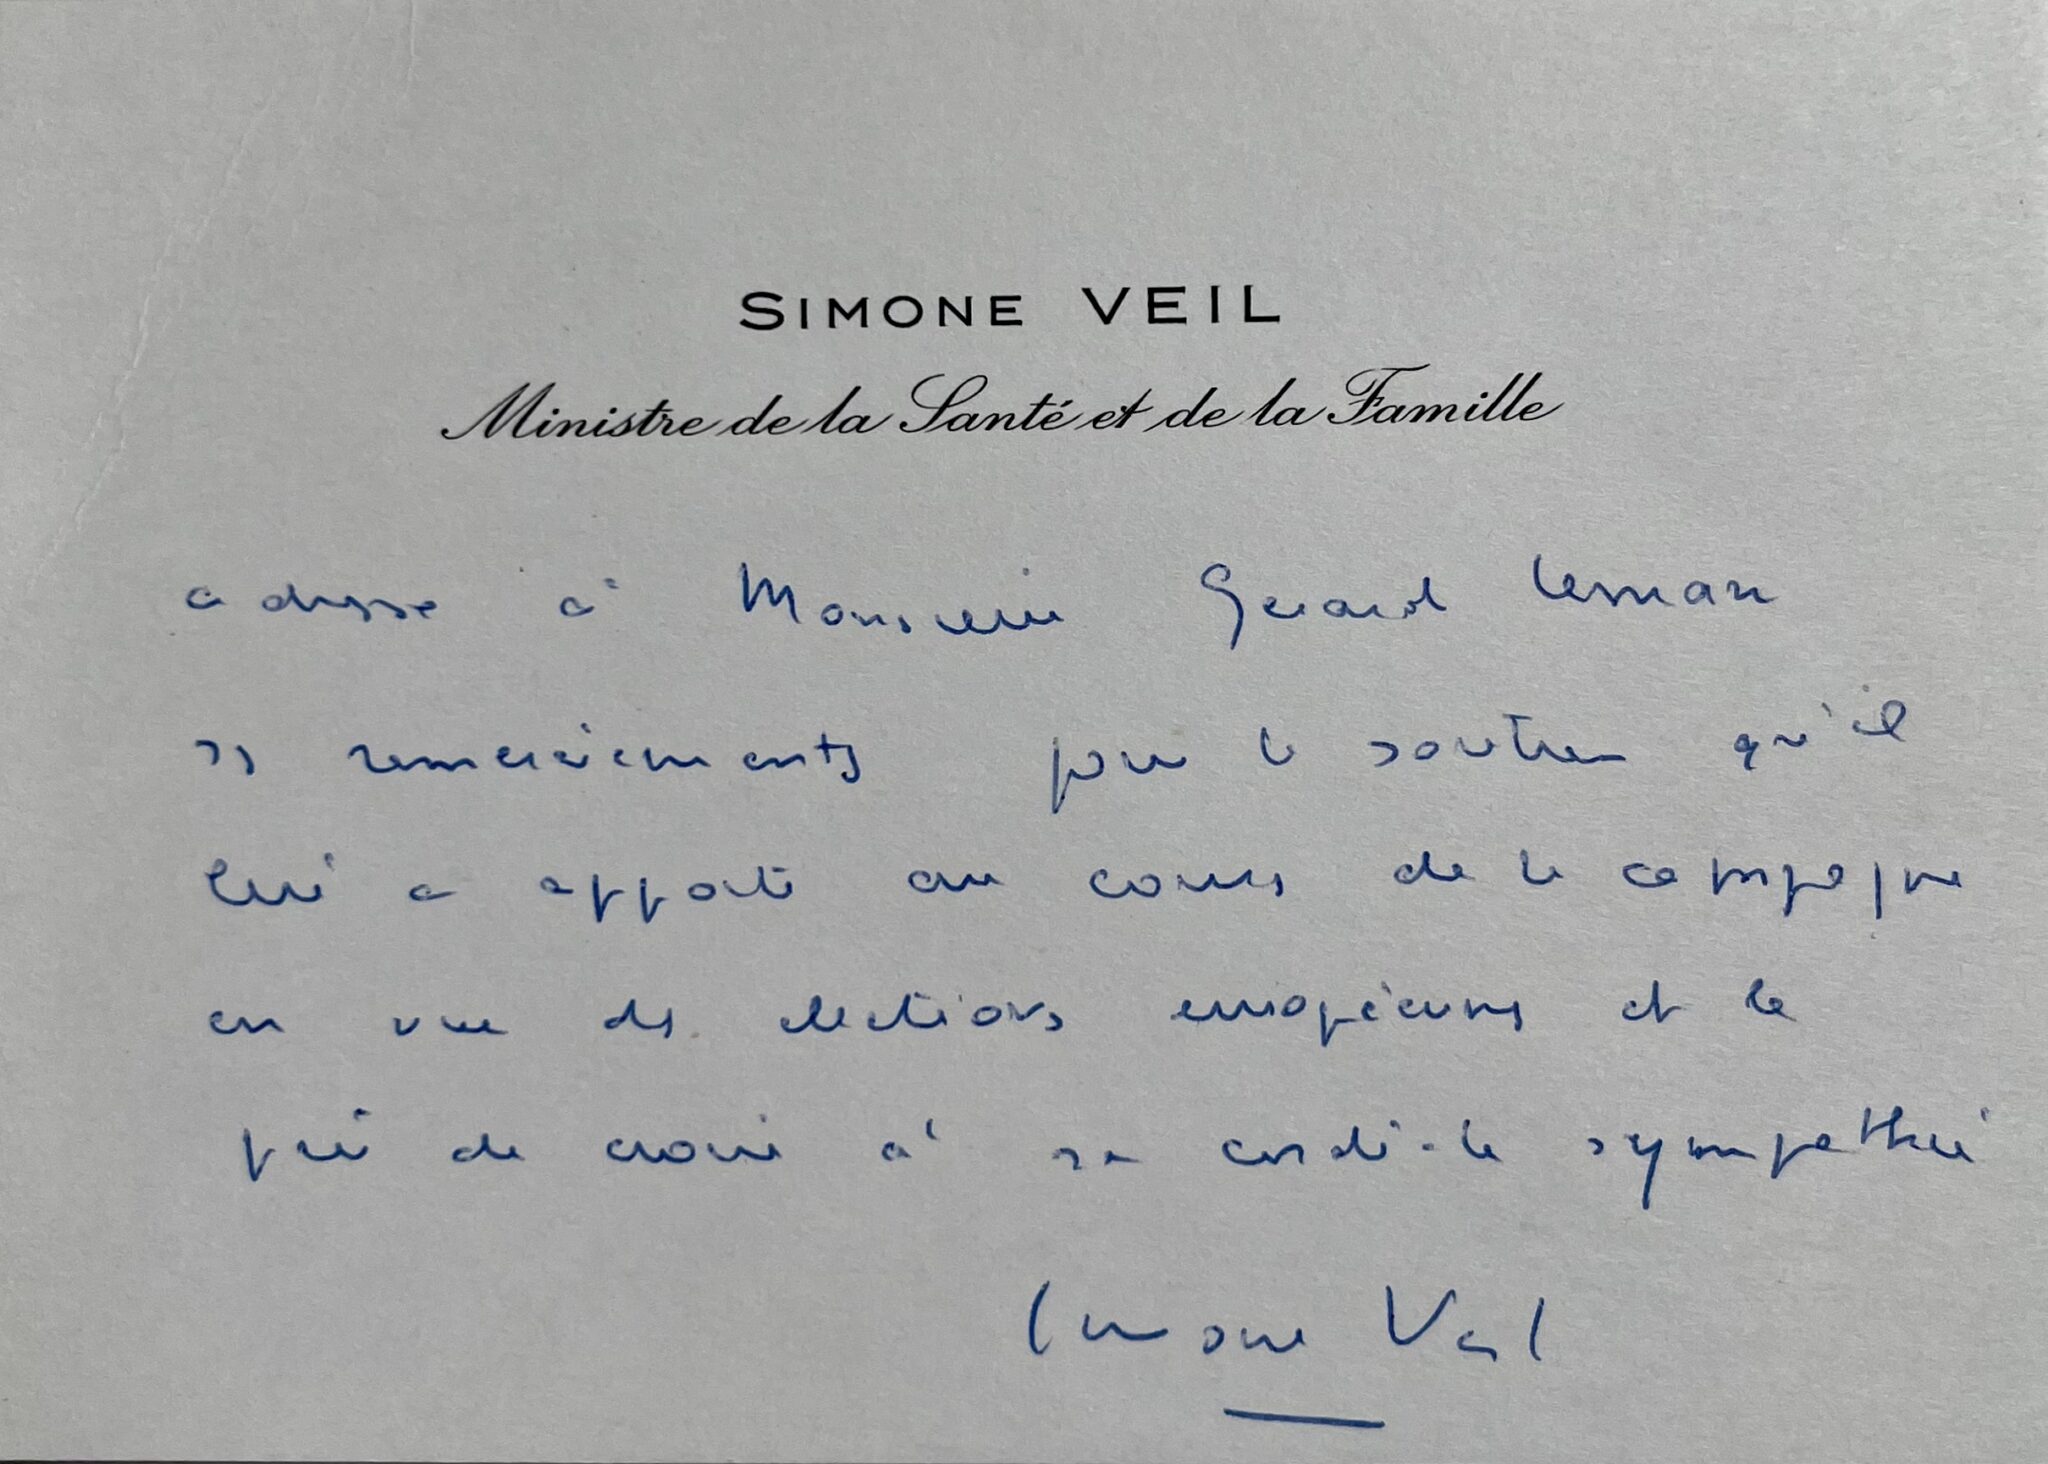 SIMONE VEIL
Ministre de la Santé et de la Famille
adresse à Monsieur Gérard Leman
ses remerciements pour le soutien qu'il
lui a apporté au cours de la campagne
en vue des élections européennes et le
prie de croire à sa cordiale sympathie
Simone Veil